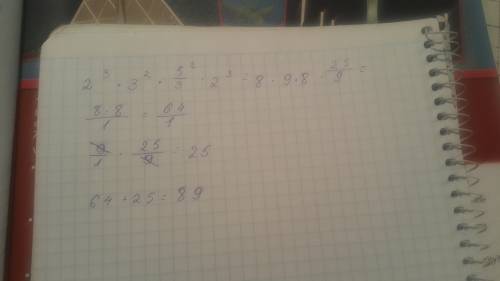 2³ · 3² · 5/3² · 2³ = 8 · 9 · 8 · 25/9 =
8·8/1 = 64/1
9/1 · 25/9 = 25
64 + 25 = 89